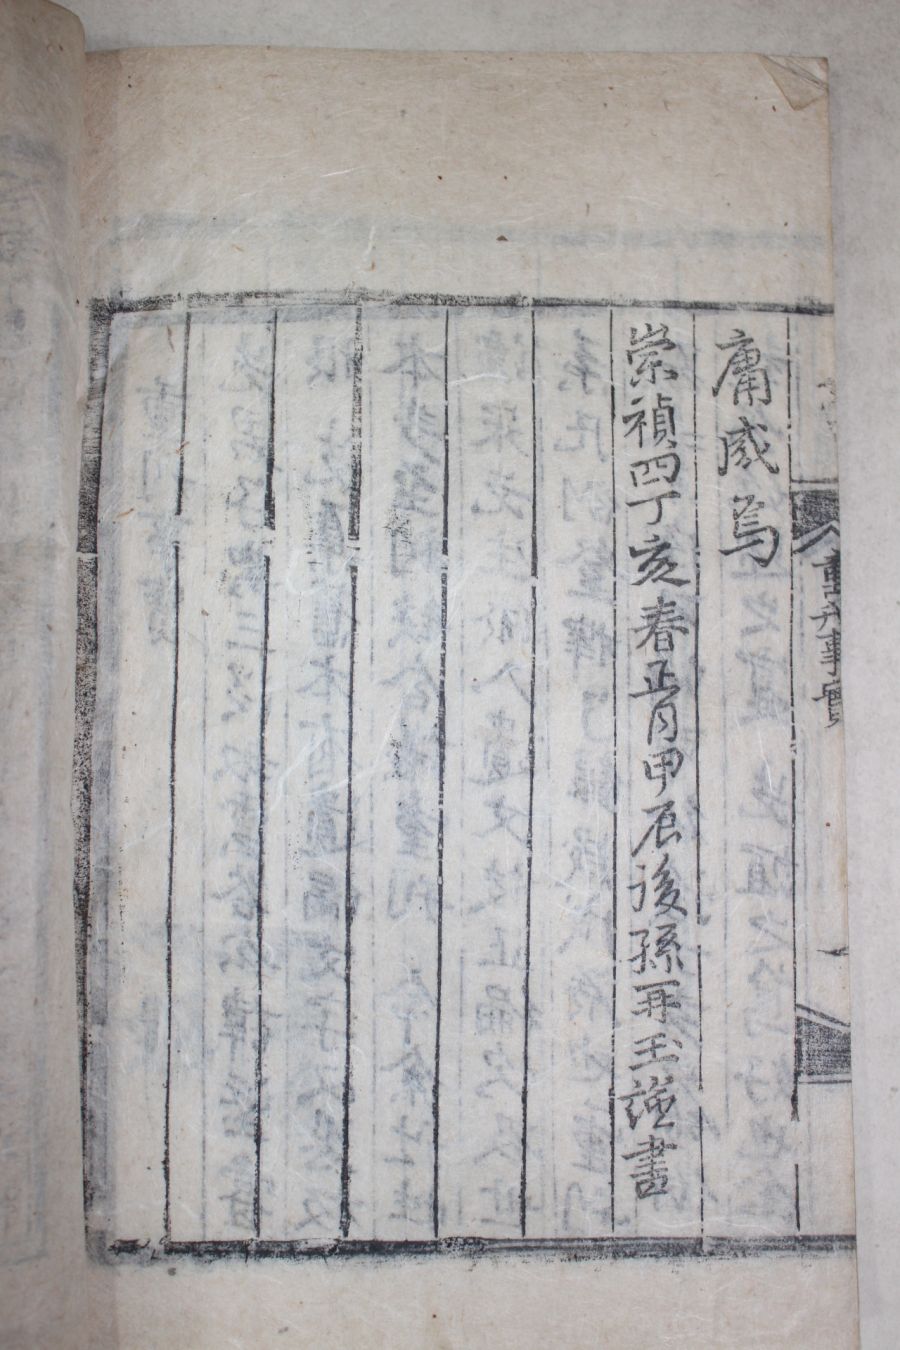 庸感焉
崇禎四丁亥春正月甲辰後孫再玉謹書
重刊事實